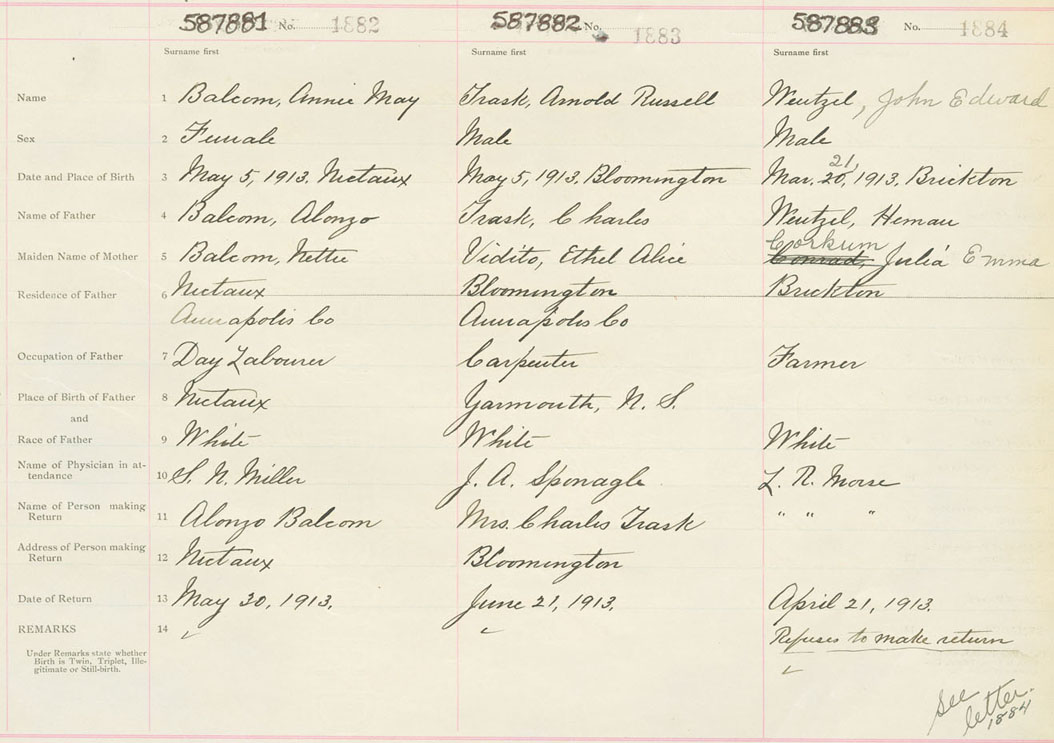 587881 No. 1882 587882 No. 1883 587883 No. 1884
Surname first Surname first Surname first
Name 1 Balcom, Annie May Trask, Arnold Russell Wentzel, John Edward
Sex 2 Female Male Male
21,
Date and Place of Birth 3 May 5, 1913. Nictaux May 5, 1913. Bloomington Mar. 20, 1913, Brickton
Name of Father 4 Balcom, Alonzo Trask, Charles Wentzel, Heman
Corkum
Maiden Name of Mother 5 Balcom, Nettie Vidito, Ethel Alice Conrad, Julia Emma
Residence of Father 6 Nictaux Bloomington Brickton
Annapolis Co Annapolis Co
Occupation of Father 7 Day Labourer Carpenter Farmer
Place of Birth of Father 8 Nictaux Yarmouth, N. S.
and
Race of Father 9 White White White
Name of Physician in at-
tendance 10 S. N. Miller J. A. Sponagle L. R. Morse
Name of Person making
Return 11 Alonzo Balcom Mrs. Charles Trask " " "
Address of Person making
Return 12 Nictaux Bloomington
Date of Return 13 May 30, 1913. June 21, 1913. April 21, 1913.
REMARKS 14 ✓ ✓ Refuses to make return
Under Remarks state whether
Birth is Twin, Triplet, Ille-
gitimate or Still-birth. ✓
See
letter.
1884